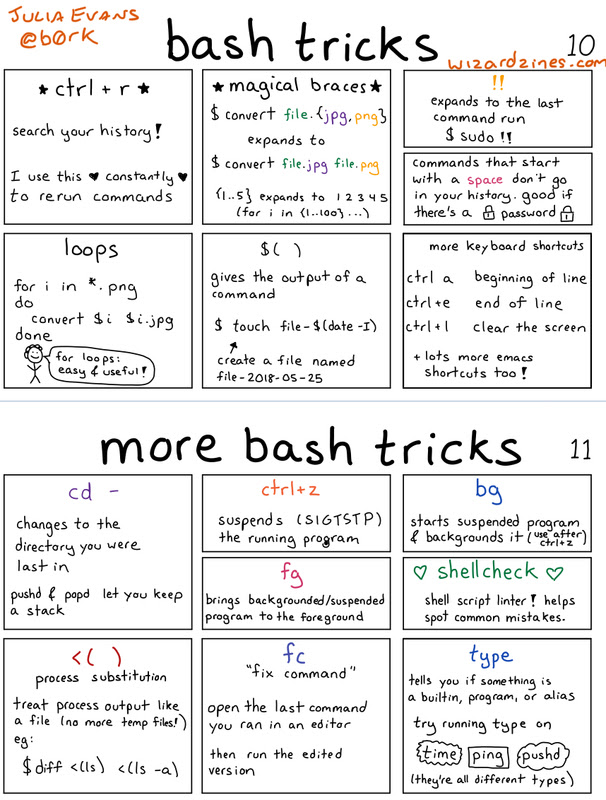 JULIA EVANS
@b0rk
bash tricks
10
wizardzines.com
★ ctrl + r ★
search your history!
I use this ♥ constantly ♥
to rerun commands
★ magical braces ★
$ convert file.{jpg,png}
expands to
$ convert file.jpg file.png
{1..5} expands to 1 2 3 4 5
(for i in {1..100} ...)
!!
expands to the last
command run
$ sudo !!
commands that start
with a space don't go
in your history. good if
there's a 🔒 password 🔒
loops
for i in *.png
do
convert $i $i.jpg
done
for loops:
easy & useful!
$( )
gives the output of a
command
$ touch file-$(date -I)
create a file named
file-2018-05-25
more keyboard shortcuts
ctrl a beginning of line
ctrl+e end of line
ctrl+l clear the screen
+ lots more emacs
shortcuts too!
more bash tricks
11
cd -
changes to the
directory you were
last in
pushd & popd let you keep
a stack
ctrl+z
suspends (SIGTSTP)
the running program
bg
starts suspended program
& backgrounds it (use after
ctrl+z)
fg
brings backgrounded/suspended
program to the foreground
♡ shellcheck ♡
shell script linter! helps
spot common mistakes.
<( )
process substitution
treat process output like
a file (no more temp files!)
eg:
$ diff <(ls) <(ls -a)
fc
"fix command"
open the last command
you ran in an editor
then run the edited
version
type
tells you if something is
a builtin, program, or alias
try running type on
time ping pushd
(they're all different types)